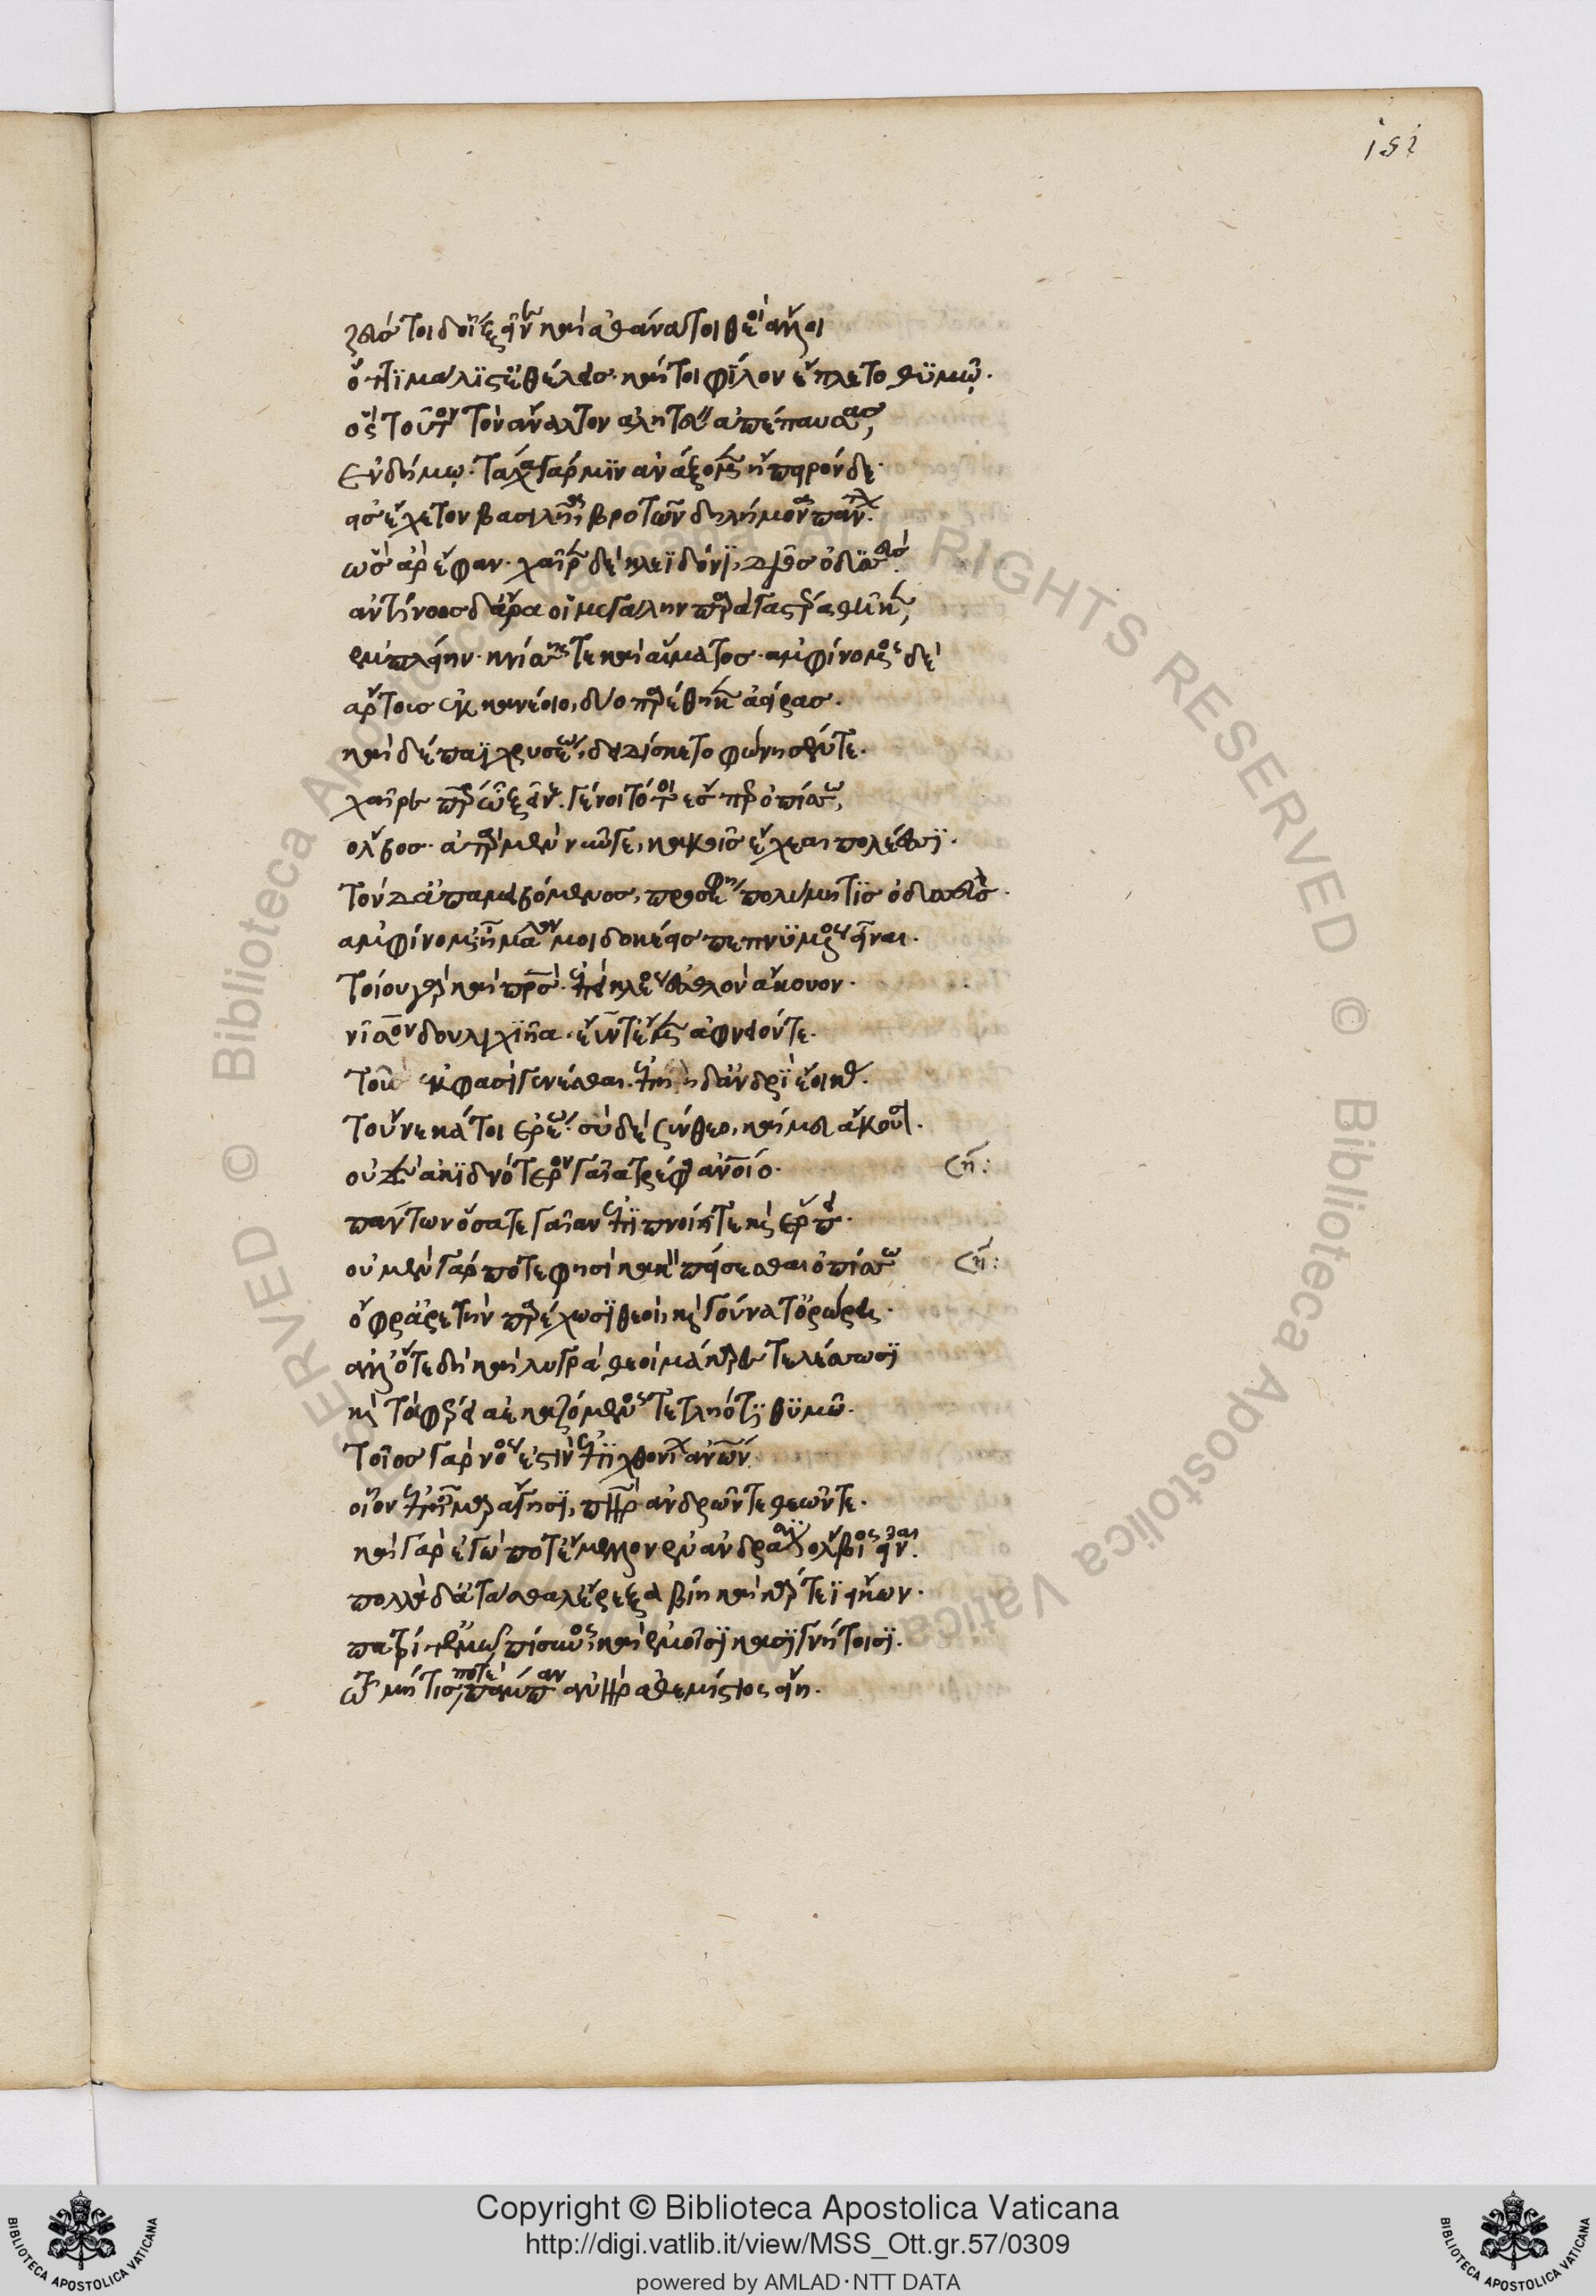 152
ζεύς τοι δοίη ξεῖνε καὶ ἀθάνατοι θεοὶ ἄλλοι
ὅττι μάλιστ' ἐθέλεις· καί τοι φίλον ἔπλετο θυμῷ.
ὃς τοῦτον τὸν ἄναλτον ἀλητεύειν ἀπέπαυσας,
ἐν δήμῳ. τάχα γάρ μιν ἀνάξομεν ἤπειρόνδε.
εἰς ἔχετον βασιλῆα, βροτῶν δηλήμονα πάντων.
ὣς ἄρ' ἔφαν· χαῖρεν δὲ κλεηδόνι, δῖος ὀδυσσεύς.
ἀντίνοος δ' ἄρα οἱ μεγάλην παρὰ γαστέρα θῆκεν,
ἐμπλείην κνίσσης τε καὶ αἵματος. ἀμφίνομος δὲ
ἄρτους ἐκ κανέοιο, δύο παρέθηκεν ἀείρας.
καὶ δέπαϊ χρυσέῳ, δειδίσκετο φώνησέν τε.
χαῖρε πάτερ ὦ ξεῖνε. γένοιτό τοι ἔς περ ὀπίσσω,
ὄλβος. ἀτὰρ μὲν νῦν γε, κακοῖς ἔχεαι πολέεσσι.
τὸν δ' ἀπαμειβόμενος, προσέφη πολύμητις ὀδυσσεύς.
ἀμφίνομ' ἦ μάλα μοι δοκέεις πεπνυμένος εἶναι.
τοίου γὰρ καὶ πατρός. ἐπεὶ κλέος ἐσθλὸν ἄκουον.
νῖσον δουλιχιῆα. ἐΰν τ' ἔμεν ἀφνειόν τε.
τοῦ σ' ἔκ φασι γενέσθαι. ἐπητῇ δ' ἀνδρὶ ἔοικας.
τοὔνεκά τοι ἐρέω. σὺ δὲ σύνθεο, καί μευ ἄκουσον.
οὐδὲν ἀκιδνότερον γαῖα τρέφει ἀνθρώποιο. ση:
πάντων ὅσα τε γαῖαν ἔπι πνείει τε καὶ ἕρπει.
οὐ μὲν γάρ ποτέ φησι κακὸν πείσεσθαι ὀπίσσω ση:
ὄφρ' ἀρετὴν παρέχωσι θεοὶ, καὶ γούνατ' ὀρώρει.
ἀλλ' ὅτε δὴ καὶ λυγρὰ θεοὶ μάκαρες τελέσωσι
καὶ τὰ φέρει ἀεκαζόμενος τετληότι θυμῷ.
τοῖος γὰρ νόος ἐστὶν ἐπιχθονίων ἀνθρώπων.
οἷον ἐπ' ἦμαρ ἄγησι, πατὴρ ἀνδρῶν τε θεῶν τε.
καὶ γὰρ ἐγώ ποτ' ἔμελλον ἐν ἀνδράσιν ὄλβιος εἶναι.
πολλὰ δ' ἀτάσθαλ' ἔρεξα βίῃ καὶ κάρτεϊ εἴκων.
πατρί τ' ἐμῷ πίσυνος, καὶ ἐμοῖσι κασιγνήτοισι.
τῷ μή τίς ποτε πάμπαν ἀνὴρ ἀθεμίστιος εἴη.
Copyright © Biblioteca Apostolica Vaticana
http://digi.vatlib.it/view/MSS_Ott.gr.57/0309
powered by AMLAD·NTT DATA